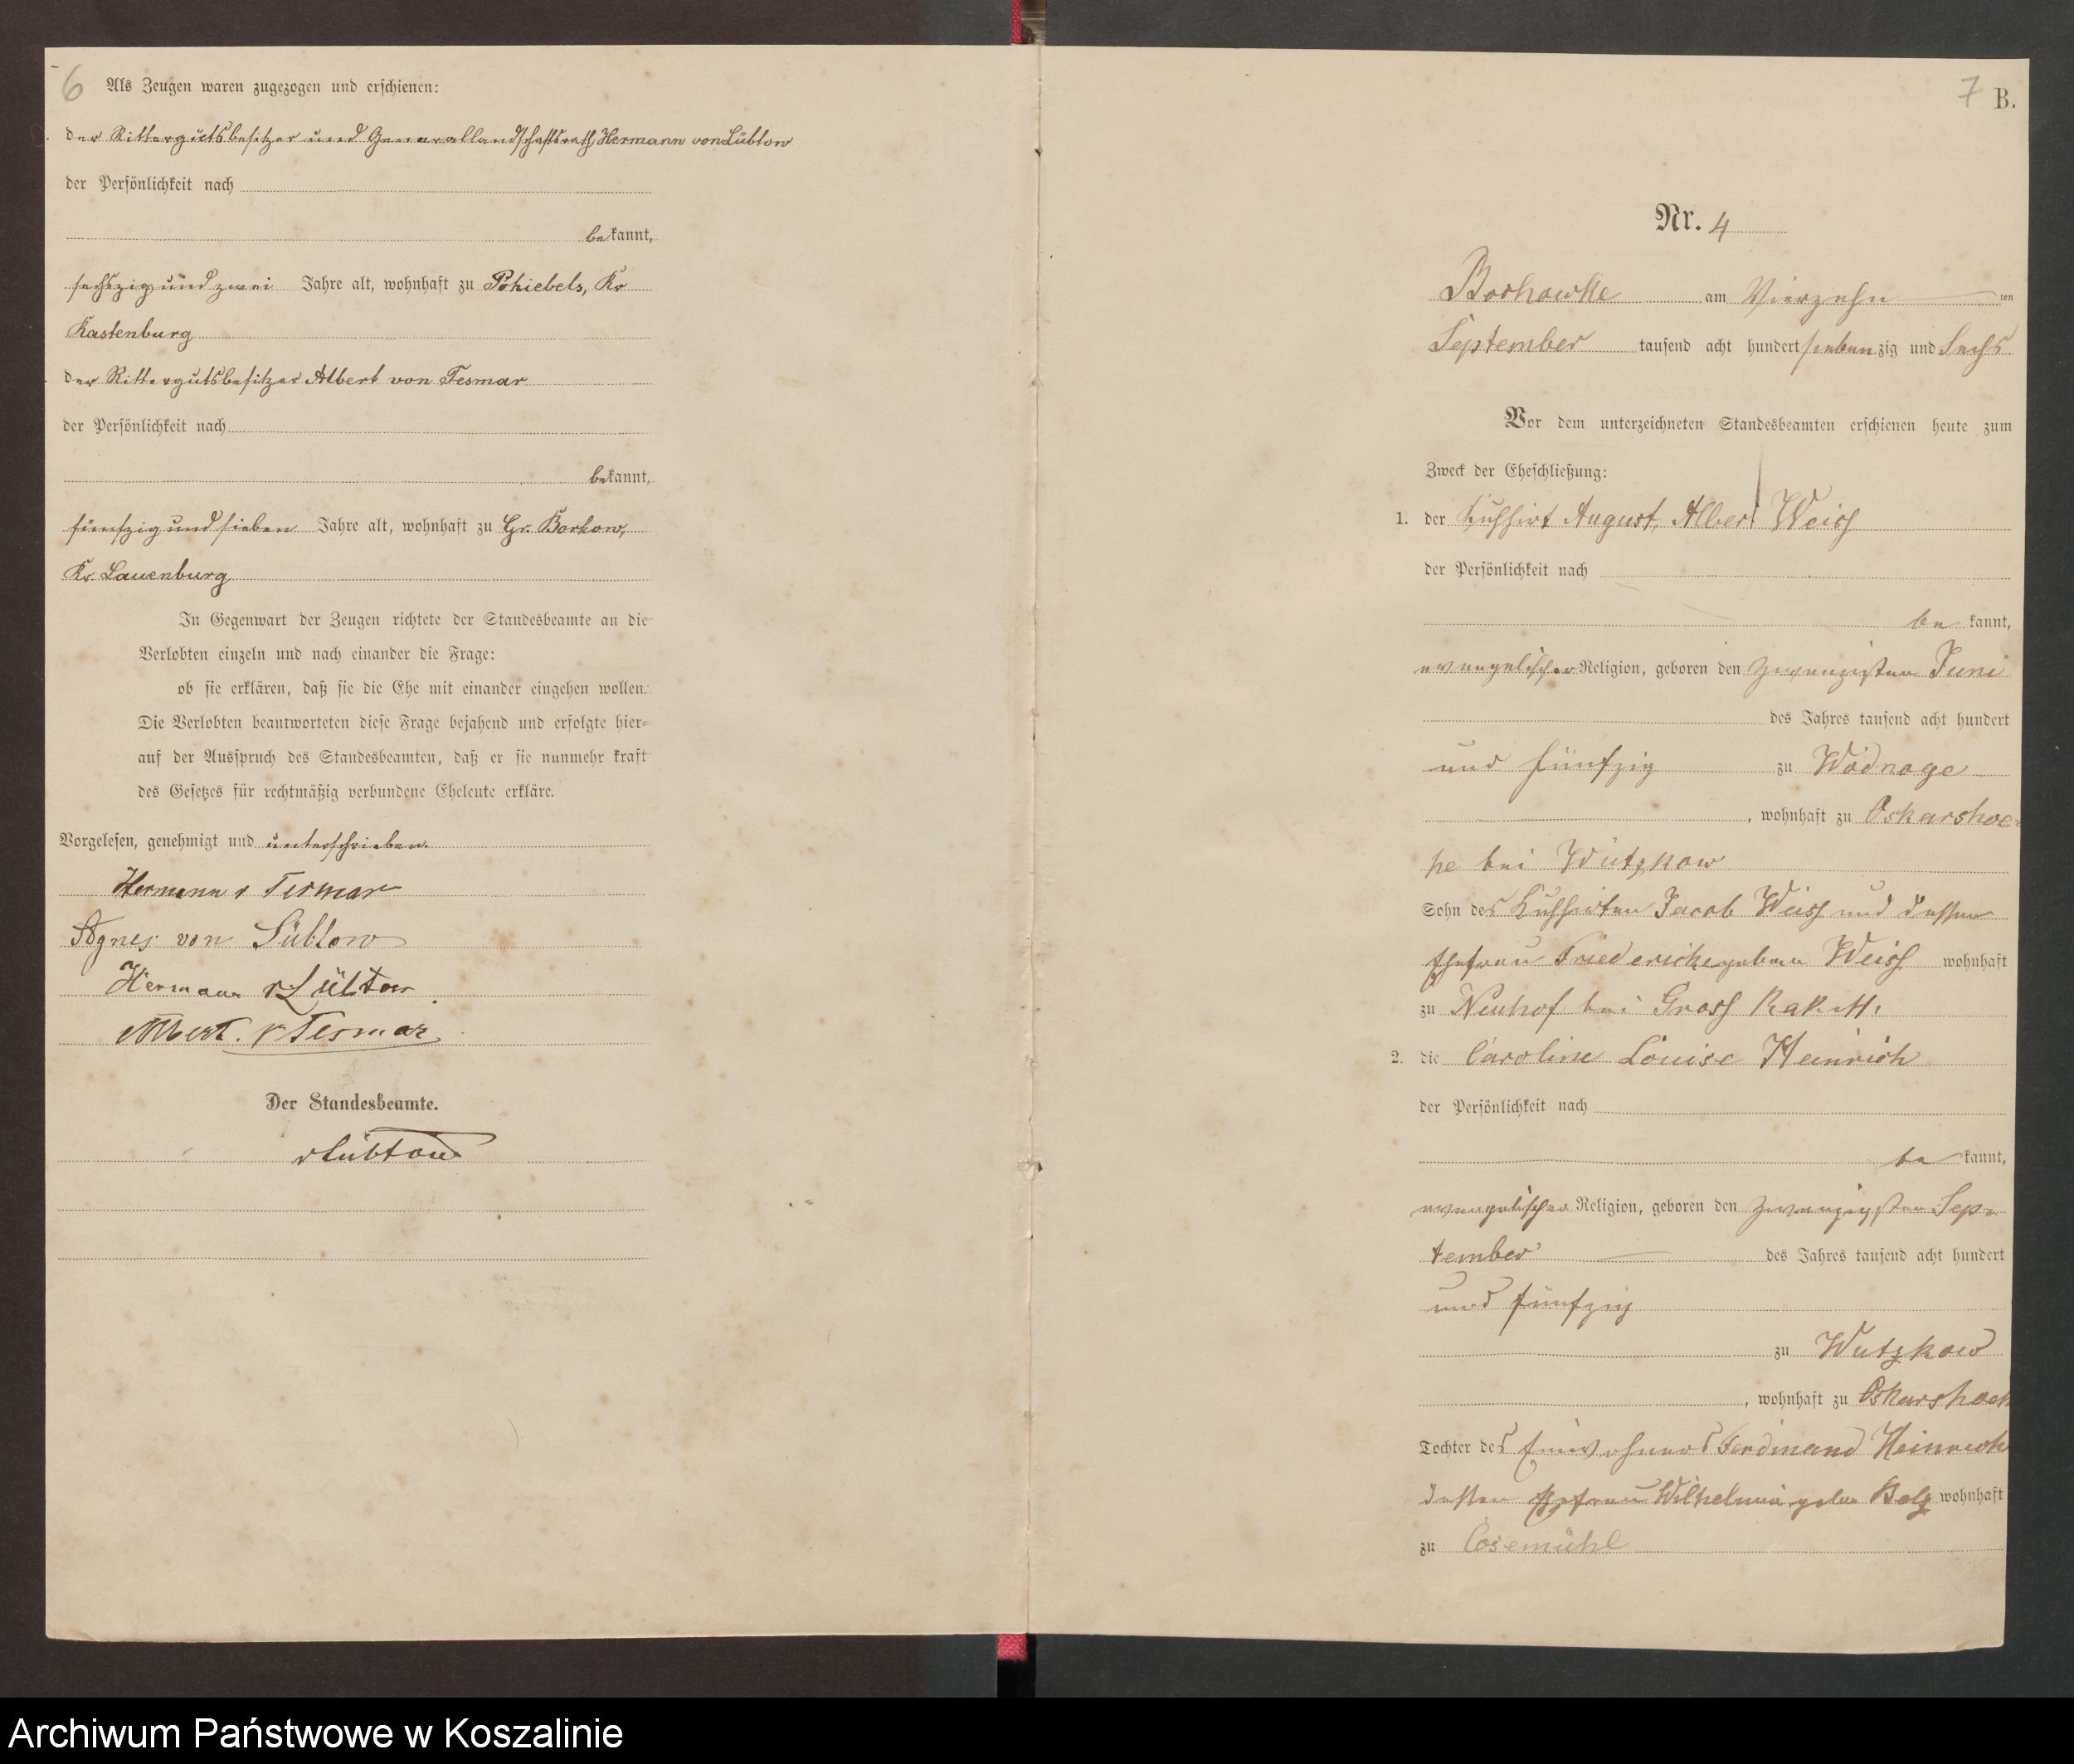 6
Als Zeugen waren zugezogen und erschienen:
der Rittergutsbesitzer und Generallandschaftsrath Hermann von Lübtow
der Persönlichkeit nach
bekannt,
sechszig und zwei Jahre alt, wohnhaft zu Pohiebels, Kr
Rastenburg
der Rittergutsbesitzer Albert von Tesmar
der Persönlichkeit nach
bekannt,
fünfzig und sieben Jahre alt, wohnhaft zu Gr. Borkow,
Kr. Lauenburg
In Gegenwart der Zeugen richtete der Standesbeamte an die
Verlobten einzeln und nach einander die Frage:
ob sie erklären, daß sie die Ehe mit einander eingehen wollen.
Die Verlobten beantworteten diese Frage bejahend und erfolgte hier-
auf der Ausspruch des Standesbeamten, daß er sie nunmehr kraft
des Gesetzes für rechtmäßig verbundene Eheleute erkläre.
Vorgelesen, genehmigt und unterschrieben.
Hermann v Tesmar
Agnes von Lübtow
Hermann v Lübtow
Albert. v Tesmar
Der Standesbeamte.
vLübtow
7 B.
Nr. 4
am Vierzehn ten
September tausend acht hundert siebenzig und Sechs
Vor dem unterzeichneten Standesbeamten erschienen heute zum
Zweck der Eheschließung:
1. der Kuhhirt August, Albert Weiss
der Persönlichkeit nach
be kannt,
evangelischer Religion, geboren den zwanzigsten Juni
des Jahres tausend acht hundert
und fünfzig zu Wodnoge
, wohnhaft zu Oskarshoe-
he bei Wutzkow
Sohn des Kuhhirten Jacob Weiss und dessen
Ehefrau Friedericke geborne Weiss wohnhaft
zu Neuhof bei Gross Rakitt.
2. die Caroline Louise Heinrich
der Persönlichkeit nach
be kannt,
evangelischer Religion, geboren den zwanzigsten Sep-
tember des Jahres tausend acht hundert
und fünfzig
zu Wutzkow
, wohnhaft zu Oskarshoeh
Tochter des Einwohners Ferdinand Heinrich
dessen Ehefrau Wilhelmine gebne Belz wohnhaft
zu Cosemühl
Archiwum Państwowe w Koszalinie